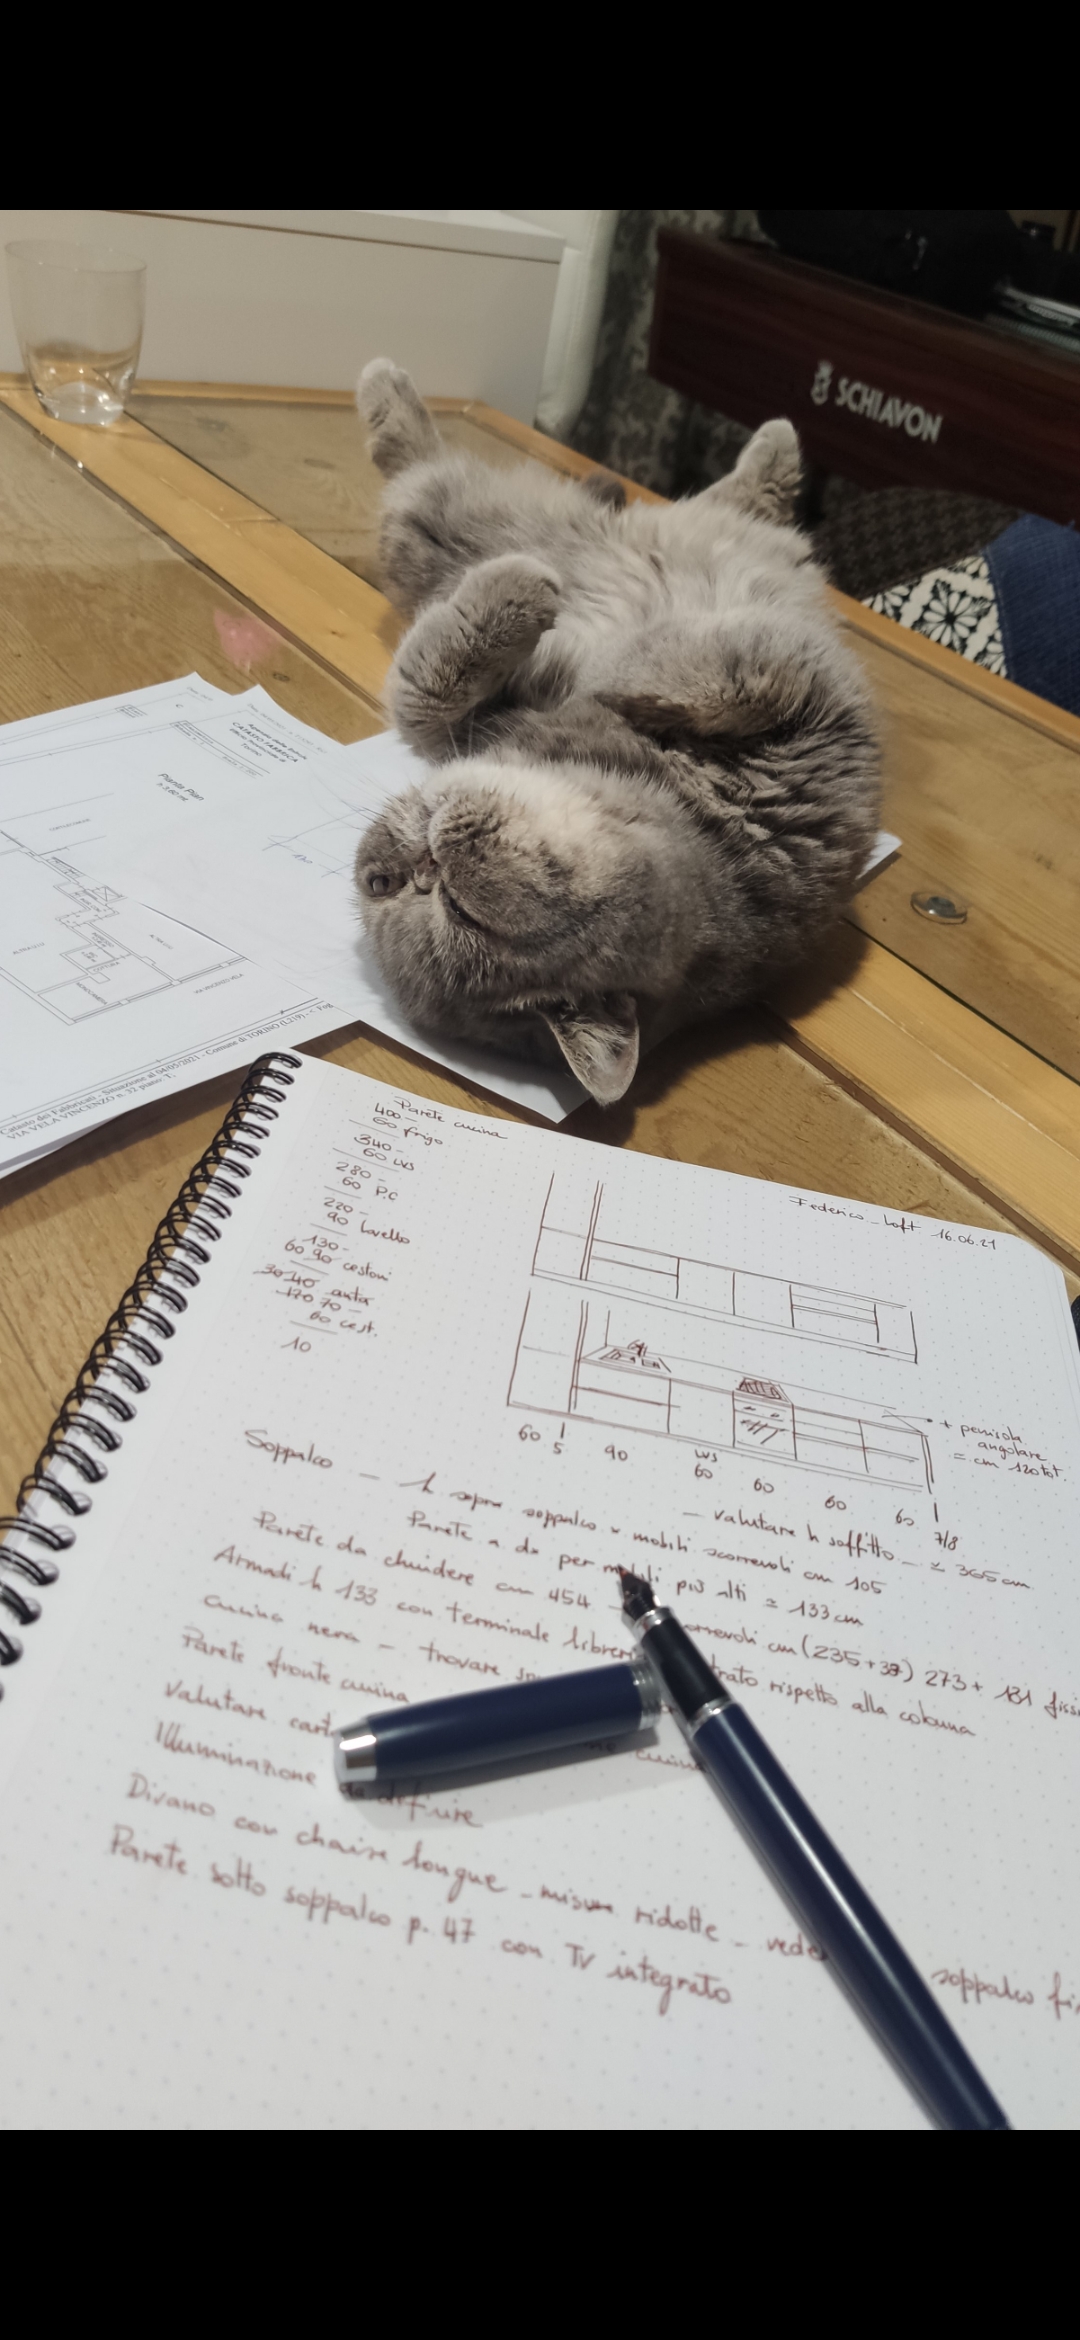 SCHIAVON
Agenzia delle Entrate
CATASTO FABBRICATI
Ufficio Provinciale di
Torino
Planta Plan
h 3.60 mt.
VIA VINCENZO VELA
Catasto dei Fabbricati - Situazione al 04/05/2021 - Comune di TORINO (L219) - < Fog
VIA VELA VINCENZO n. 32 piano: T.
Parete cucina
400 -
60 frigo
340 -
60 LVS
280 -
60 P.C
220 -
90 lavello
130 -
60 90 cestoni
30 40 anta
170 70 -
60 cest.
10
Federico_Loft 16.06.21
+ penisola
angolare
= cm 120 tot.
60 5 90 WS 60 60 60 60 7/8
- valutare h soffitto - ≃ 365 cm
Soppalco - h sopra soppalco x mobili scorrevoli cm 105
Parete a dx per mobili più alti ≃ 133 cm
Parete da chiudere cm 454 - scorrevoli cm (235+38) 273 + 181 fissi
Armadi h 133 con terminale libreria rispetto alla colonna
cucina nera - trovare
Parete fronte cucina
Valutare cucina
Illuminazione da definire
Divano con chaise longue - misure ridotte - vedere soppalco
Parete sotto soppalco p. 47 con TV integrato